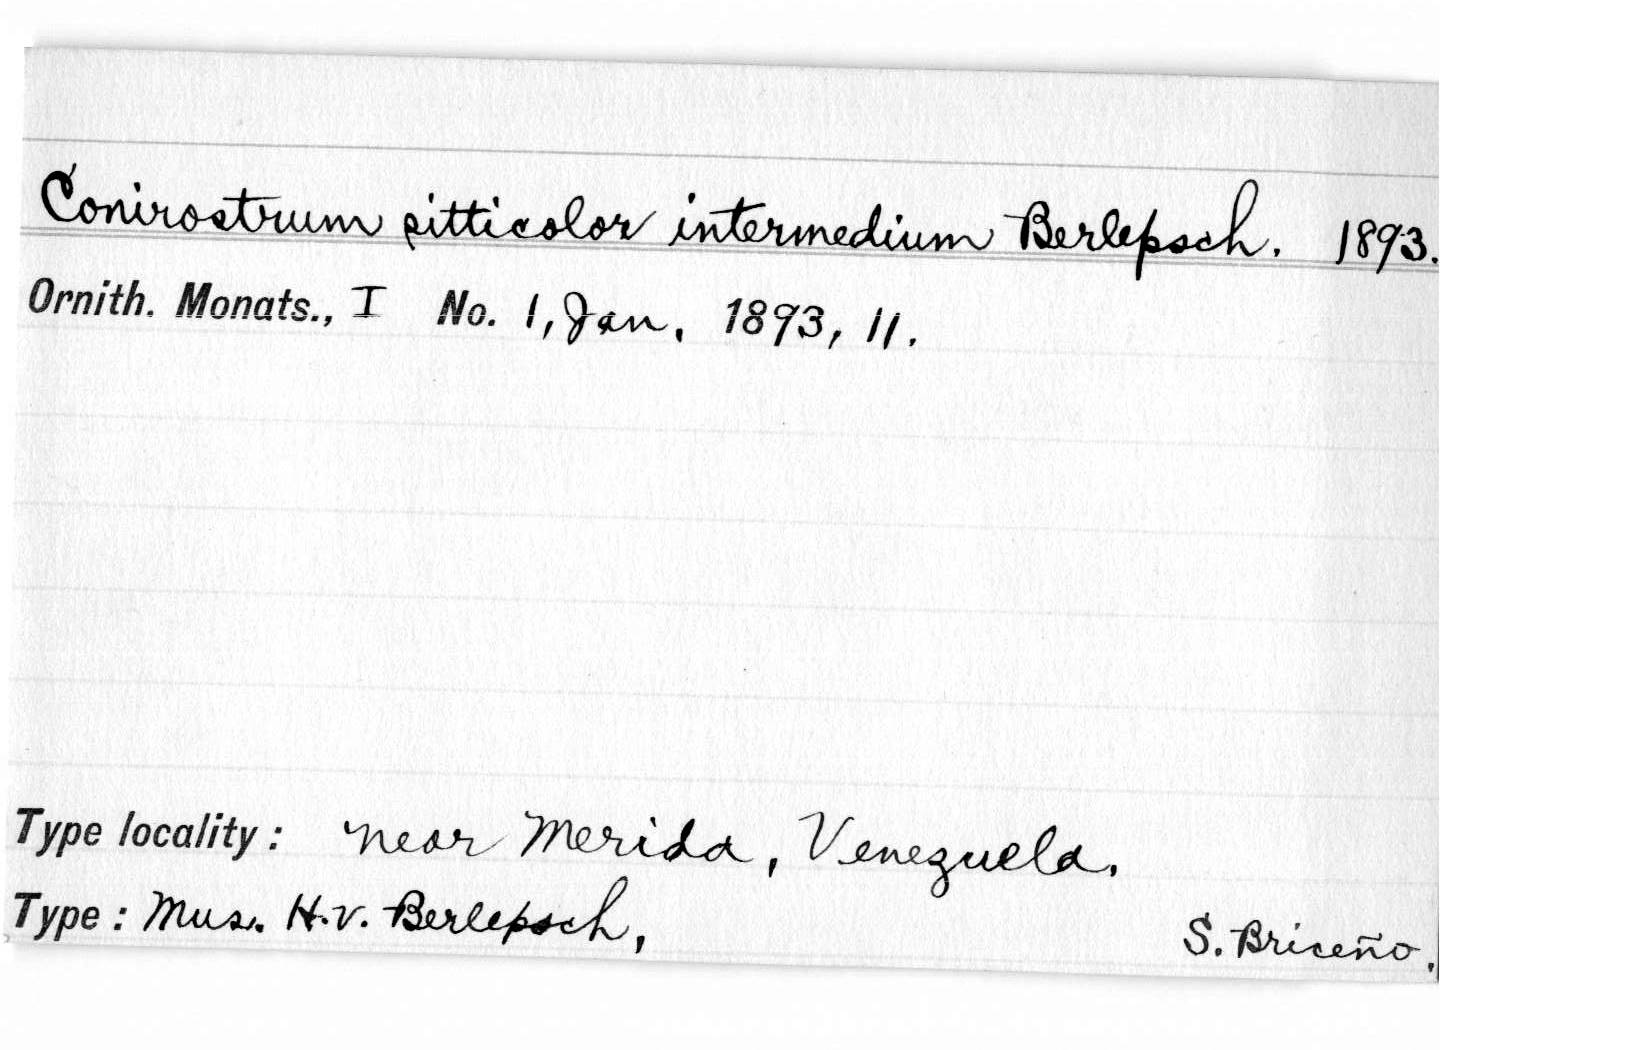 Conirostrum sitticolor intermedium Berlepsch. 1893.
Ornith. Monats., I No. 1, Jan. 1893, 11.
Type locality: near Merida, Venezuela.
Type: Mus. H.v. Berlepsch, S. Briceño.